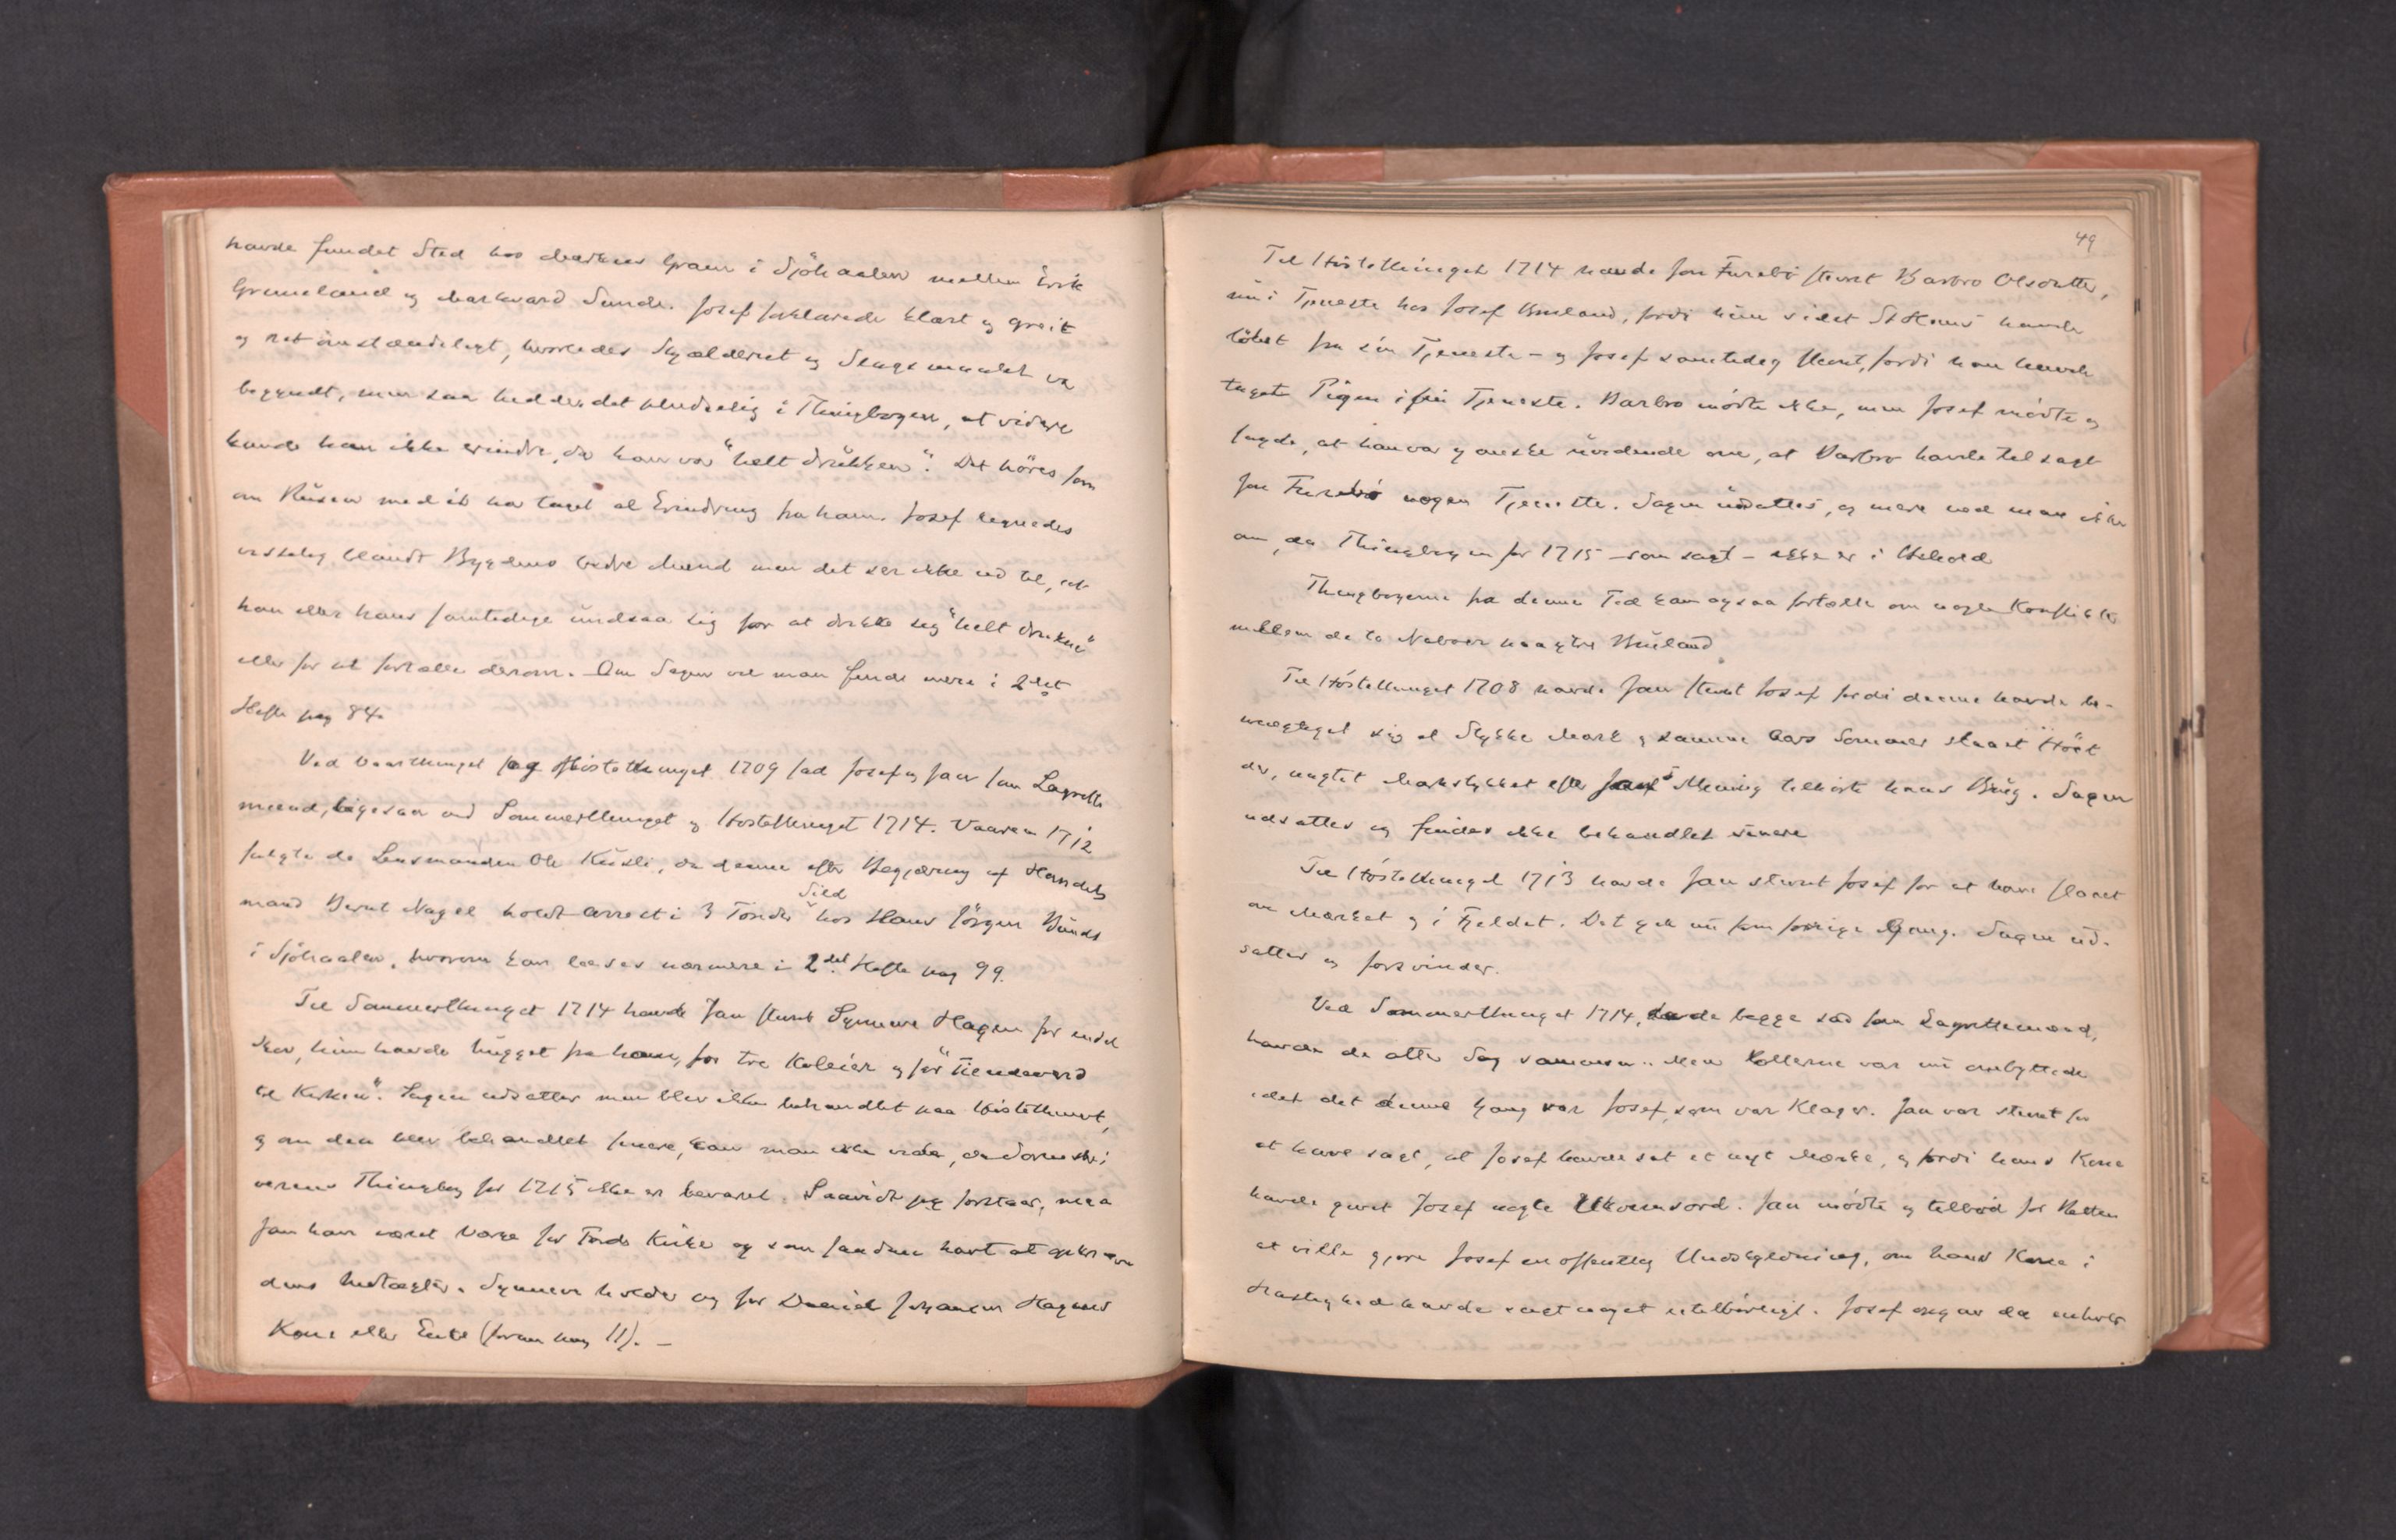 havde fundet Sted hos Markus Gram i Sjöholen mellem Erik
Gruneland og Markvard Sunde. Josef forklarede klart og greit
og ret omstændeligt, hvorledes Skjælderiet og Slagsmaalet var
begyndt, men saa hedder det pludselig i Thingbogen, at videre
kunde han ikke erindre, da han var "helt drükken". Det höres som
om Rüsen med ét har taget al Erindring fra ham. Josef regnedes
visselig blandt Bygdens bedre Mænd men det ser ikke ud til, at
han eller hans samtidige undsaa sig for at drikke sig "helt drukne"
eller for at fortælle derom. Om Sagen vil man finde mere i 2det
Hefte pag 84.
Ved Vaarthinget og Höstethinget 1709 sad Josef og Jan som Lagrettes
mænd, ligesaa ved Sommerthinget og Höstethinget 1714. Vaaren 1712
fulgte de Lensmanden Ole Küsli, da denne efter Begjæring af Handels
mand Bernt Nagel holdt arrest i 3 Tönder Sild hos Hans Jörgen Bünds
i Sjöholen, hvorom kan læses nærmere i 2det Hefte pag 99.
Til Sommerthinget 1714 havde Jan stevnt Synneve Hagen for endel
Skov, hun havde hugget fra ham, for tre Koleier og for "Tiendeverd
til Kirken". Sagen udsattes men blev ikke behandlet paa Höstethinget,
og om den blev behandlet senere, kan man ikke vide, da Sorenskri
verens Thingbog for 1715 ikke er bevaret. Saavidt jeg forstaar, maa
Jan have været Værge for Kirke og som saadan havt at opkræve
dens Indtægter. Synneve holder jeg for Daniel Johansen Hagens
Kone eller Enke (foran pag 11). –
49
Til Höstethinget 1714 havde Jan Furebö stevnt Barbro Olsdatter,
nu i Tjeneste hos Josef Büeland, fordi hun sidst St Hans havde
löbet fra sin Tjeneste – og Josef samtidig stevnt, fordi han havde
taget Pigen i sin Tjeneste. Barbro mödte ikke, men Josef mödte og
sagde, at han var ganske uvidende om, at Barbro havde tilsagt
Jan Furebö nogen Tjeneste. Sagen udsattes, og mere ved man ikke
om, da Thingbogen for 1715 – som sagt – ikke er i Behold
Thingbogerne fra denne Tid kan ogsaa fortælle om nogle Konflikter
mellem de to Naboer paa Büeland
Til Höstethinget 1708 havde Jan stevnt Josef fordi denne havde be-
mægtiget sig et Stykke Mark og samme Aars Sommer slaaet Höet
der, uagtet Markstykket efter Jans Mening tilhörte hans Brug. Sagen
udsattes og findes ikke behandlet senere
Til Höstethinget 1713 havde Jan stevnt Josef for at have slaaet
om Marked og i Fjeldet. Det gik nu som forrige Gang. Sagen ud-
sattes og forsvinder.
Ved Sommerthinget 1714, da de begge sad som Lagrettemænd,
havde de atter Sag sammen. Men Rollerne var nu ombyttede
idet det denne Gang var Josef, som var Klager. Jan var stevnt for
at have sagt, at Josef havde sat et nyt Mærke, og fordi hans Kone
havde givet Josef nogle Ukvemsord. Jan mödte og tilböd for Retten
at ville gjöre Josef en offentlig Undskyldning, om hans Kone i
Hastighed havde sagt noget utilbörligt. Josef opgav da enhver